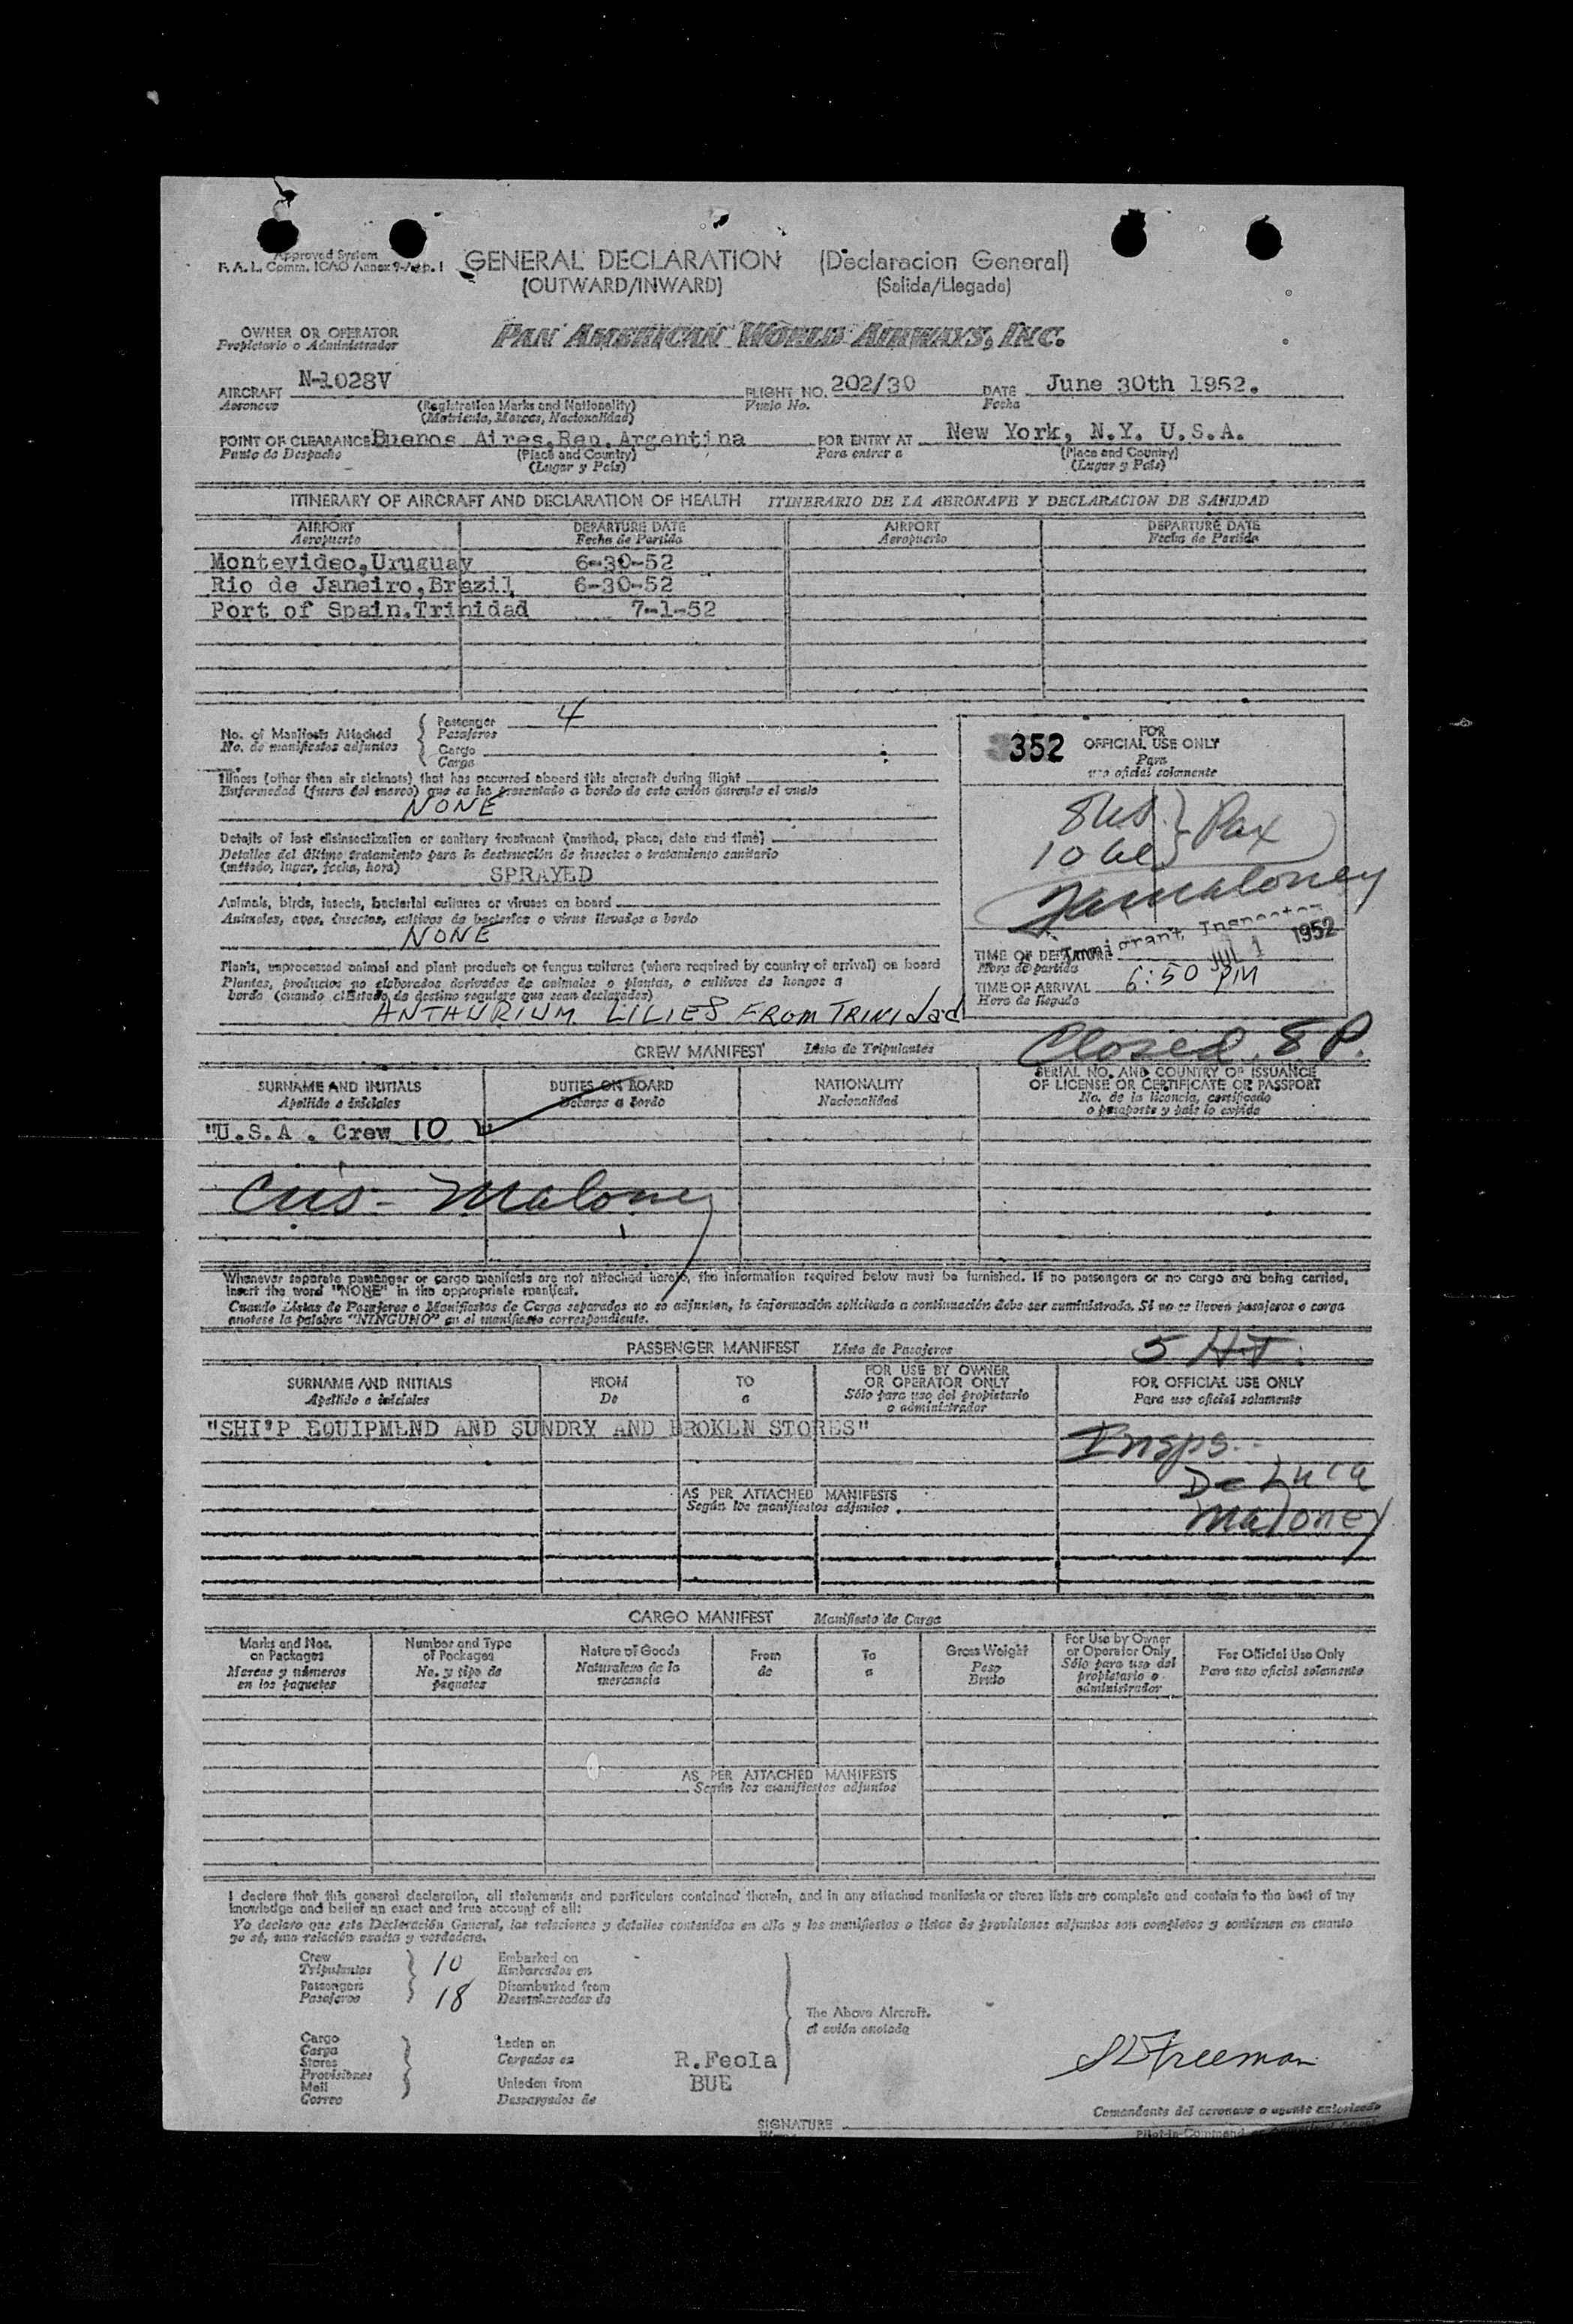 Approved System
F. A. L. Comm. ICAO Annex 9-App. 1
GENERAL DECLARATION (Declaracion General)
(OUTWARD/INWARD) (Salida/Llegada)
OWNER OR OPERATOR
Propietario o Administrador
PAN AMERICAN WORLD AIRWAYS, INC.
AIRCRAFT N-1028V FLIGHT NO. 202/30 DATE June 30th 1952.
Aeronave (Registration Marks and Nationality) Vuelo No. Fecha
(Matricula, Marcas, Nacionalidad)
POINT OF CLEARANCE Buenos Aires,Rep.Argentina FOR ENTRY AT New York, N.Y. U.S.A.
Punto de Despacho (Place and Country) Para entrar a (Place and Country)
(Lugar y Pais) (Lugar y Pais)
ITINERARY OF AIRCRAFT AND DECLARATION OF HEALTH ITINERARIO DE LA AERONAVE Y DECLARACION DE SANIDAD
AIRPORT DEPARTURE DATE AIRPORT DEPARTURE DATE
Aeropuerto Fecha de Partida Aeropuerto Fecha de Partida
Montevideo,Uruguay 6-30-52
Rio de Janeiro,Brazil 6-30-52
Port of Spain.Trinidad 7-1-52
No. of Manifests Attached
No. de manifiestos adjuntos
Passenger 4
Pasajeros
Cargo
Carga
352 FOR
OFFICIAL USE ONLY
Para
uso oficial solamente
Illness (other than air sickness) that has occurred aboard this aircraft during flight
Enfermedad (fuera del mareo) que se ha presentado a bordo de este avión durante el vuelo
NONE
Details of last disinsectization or sanitary treatment (method, place, date and time)
Detalles del último tratamiento para la destrucción de insectos o tratamiento sanitario
(método, lugar, fecha, hora)
SPRAYED
8 us } Pax
10 al
Maloney
Immigrant Inspector
JUL 1 1952
Animals, birds, insects, bacterial cultures or viruses on board
Animales, aves, insectos, cultivos de bacterias o virus llevados a bordo
NONE
TIME OF DEPARTURE
Hora de partida
TIME OF ARRIVAL 6:50 PM
Hora de llegada
Plants, unprocessed animal and plant products or fungus cultures (where required by country of arrival) on board
Plantas, productos no elaborados derivados de animales o plantas, o cultivos de hongos a
bordo (cuando el Estado de destino requiere que sean declarados)
ANTHURIUM LILIES FROM TRINIdad
Closed. 8 P.
CREW MANIFEST Lista de Tripulantes
SURNAME AND INITIALS DUTIES ON BOARD NATIONALITY SERIAL NO. AND COUNTRY OF ISSUANCE
OF LICENSE OR CERTIFICATE OR PASSPORT
Apellido e iniciales Deberes a bordo Nacionalidad No. de la licencia, certificado
o pasaporte y pais lo expide
"U.S.A . Crew 10
Cus- Maloney
Whenever separate passenger or cargo manifests are not attached hereto, the information required below must be furnished. If no passengers or no cargo are being carried,
insert the word "NONE" in the appropriate manifest.
Cuando Listas de Pasajeros o Manifiestos de Carga separados no se adjunten, la información solicitada a continuación debe ser suministrada. Si no se lleven pasajeros o carga
anotese la palabra "NINGUNO" en el manifiesto correspondiente.
PASSENGER MANIFEST Lista de Pasajeros 5 HT.
SURNAME AND INITIALS FROM TO FOR USE BY OWNER
OR OPERATOR ONLY FOR OFFICIAL USE ONLY
Apellido e iniciales De a Sólo para uso del propietario
o administrador Para uso oficial solamente
"SHI"P EQUIPMEND AND SUNDRY AND BROKEN STORES"
Insps.
De Luca
Maloney
AS PER ATTACHED MANIFESTS
Según los manifiestos adjuntos
CARGO MANIFEST Manifiesto de Carga
Marks and Nos.
on Packages
Marcas y números
en los paquetes
Number and Type
of Packages
No. y tipo de
paquetes
Nature of Goods
Naturaleza de la
mercancia
From
de
To
a
Gross Weight
Peso
Bruto
For Use by Owner
or Operator Only
Sólo para uso del
propietario o
administrador
For Official Use Only
Para uso oficial solamente
AS PER ATTACHED MANIFESTS
Según los manifiestos adjuntos
I declare that this general declaration, all statements and particulars contained therein, and in any attached manifests or stores lists are complete and contain to the best of my
knowledge and belief an exact and true account of all:
Yo declaro que esta Declaración General, las relaciones y detalles contenidos en ella y los manifiestos o listas de provisiones adjuntos son completos y contienen en cuanto
yo sé, una relación exacta y verdadera.
Crew 10 Embarked on
Tripulantes Embarcados en
Passengers 18 Disembarked from
Pasajeros Desembarcados de
The Above Aircraft.
el avión anotado
Cargo
Carga
Stores
Provisiones
Mail
Correo
Laden on
Cargados en
Unladen from
Descargados de
R.Feola
BUE
Freeman
Comandante del aeronave o agente autorizado
SIGNATURE
Pilot-in-Command